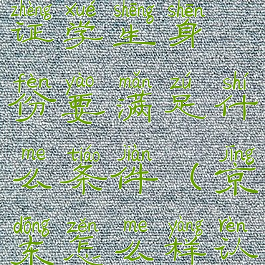 zhèng xué shēng shēn
证学生身
fèn yào mǎn zú shí
份要满足什
me tiáo jiàn jīng
么条件（京
dōng zěn me yàng rèn
东怎么样认